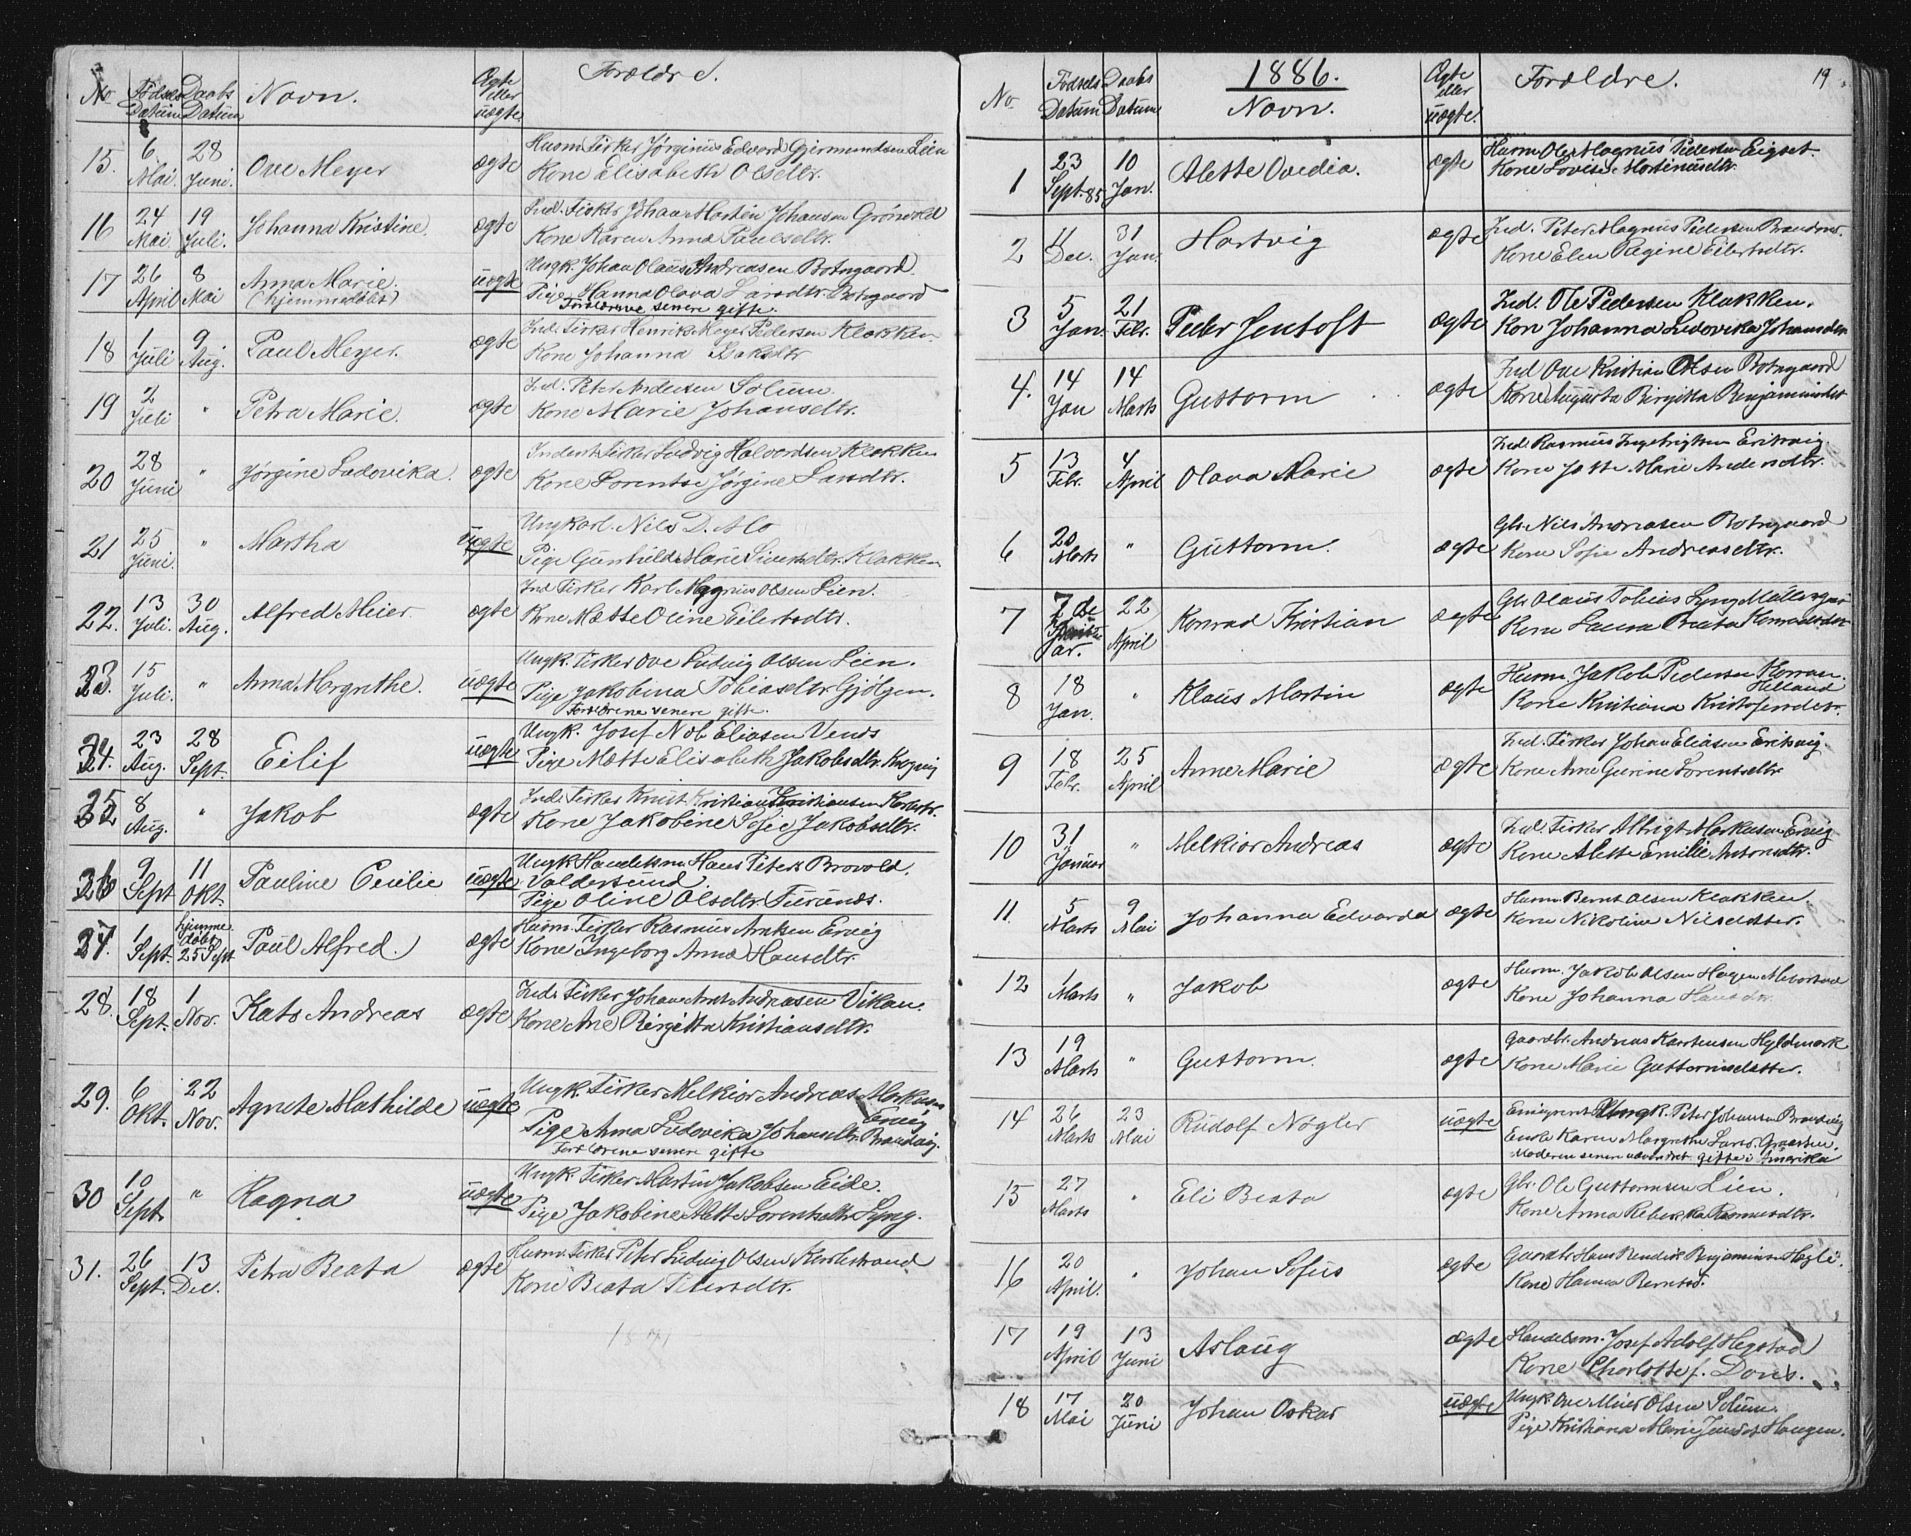 No. Fødsels Datum Daabs Datum Navn. Ægte eller uægte. Forældre.
15. 6 Mai. 28 Juni. Ove Meyer ægte Husm. Fisker Jørginus Edvard Gjermundsen Lien
Kone Elisabeth Olsdtr.
16 24 Mai. 19 Juli. Johanna Kristine. ægte Ind. Fisker Johan Martin Johansen Grönvold
Kone Karen Anna Paulsdtr.
17 26 April 8 Mai Anna Marie. (hjemmedøbt) uægte Ungk. Johan Olaus Andreasen Botngaard.
Pige Hanna Olava Larsdtr. Botngaard
Forældrene senere gifte.
18 1 Juli 9 Aug. Paul Meyer. ægte Ind. Fisker Henrik Meyer Pedersen Klakken.
Kone Johanna Isaksdtr
19 2 Juli " Petra Marie. ægte Ind. Peter Andersen Solum.
Kone Marie Johansdtr.
20 28 Juni " Jørgine Ludovika. ægte Inderst Fisker Ludvig Halvordsen Klakken
Kone Lorentse Jørgine Larsdtr.
21 25 Juni. " Martha uægte Ungkarl. Nils D. Alo
Pige Gunhild Marie Sivertsdtr. Klakken
22. 13 Juli. 30 Aug. Alfred Meier ægte Ind Fisker Karl Magnus Olsen Lien.
Kone Mætte Oline Eilertsdtr.
23. 15 Juli. " Anna Margrethe. uægte Ungk. Fisker Ove Ludvig Olsen Lien.
Pige Jakobina Tobiasdtr Gjölgen.
Forældrene senere gifte.
24. 23 Aug. 28 Sept. Eilif uægte Ungk. Josef Nob Eliasen Vends
Pige Mætte Elisabeth Jakobsdtr.
25 8 Aug. " Jakob ægte Ind. Fisker Knut Kristian Kristiansen
Kone Jakobine Sofie Jakobsdtr.
26 9 Sept 11 Okt. Pauline Cecilie uægte Ungk. Handelsm Hans Peter Brovold.
Valdersund.
Pige Oline Olsdtr.
27. 1 Sept. hjemme døbt 25 Sept Paul Alfred. ægte Husm. Fisker Rasmus Arntsen Ervig
Kone Ingeborg Anna Hansdtr.
28. 18 Sept. 1 Nov. Kato Andreas ægte Ind. Fisker Johan Arnt Andreasen Vikan.
Kone Ane Birgitta Kristiansdtr.
29. 6 Okt. 22 Nov. Agnete Mathilde uægte Ungk. Fisker Melkior Andreas Markusen
Ervig
Pige Anna Ludovika Johansdtr. Brandvig.
Forældrene senere gifte
30 10 Sept. " Ragna uægte Ungk. Fisker Martin Jakobsen Eide.
Pige Jakobine Alette Lorentsdtr. Lyng.
31. 26 Sept. 13 Dec. Petra Beata ægte Husm. Fisker Peter Ludvig Olsen Karlestrand
Kone Beata Petersdtr.
19
1886.
No. Fødsels Datum Daabs Datum Navn. Ægte eller uægte. Forældre.
1 23 Sept. 85 10 Jan. Alette Ovedia. ægte Husm. Ole Magnus Pedersen Eigset.
Kone Lovise Martinusdtr.
2 11 Dec. 31 Jan. Hartvig ægte Ind. Peter Magnus Pedersen
Kone Elen Regine Eilertsdtr.
3 5 Jan. 21 Febr. Peder Jentoft ægte Ind. Ole Pedersen Klakken.
Kon Johanna Ludovika Johansdtr
4. 14 Jan 14 Marts Guttorm ægte Ind Ove Kristian Olsen Botngaard
Kone Augusta Birgitta Benjaminsdtr
5 13 Febr. 4 April Olava Marie ægte Ind. Rasmus Ingebrigtsen Eriksvig.
Kone Jette Marie Andersdtr.
6 20 Marts " Guttorm. ægte Gbr. Nils Andreasen Botngaard
Kone Sofie Andreasdtr.
7 7de Januar. 22 April Konrad Kristian ægte Gbr. Olaus Tobias Lyng
Kone Laura Beata Konradsdtr
8 18 Jan. " Klaus Martin ægte Husm. Jakob Pedersen
Helland
Kone Kristiana Kristofersdtr.
9 18 Febr. 25 April Anne Marie ægte Ind. Fisker Johan Eliasen Eriksvig.
Kone Ane Gurine Lorentsdtr
10 31 Januar " Melkior Andreas ægte Ind. Fisker Albrigt Markusen Ervig
Kone Alette Emilie Antonsdtr.
11. 5 Marts 9 Mai Johanna Edvarda ægte Husm. Bernt Olsen Klakken.
Kone Nikoline Nilsdatter.
12 1 Marts " Jakob ægte Husm. Jakob Olsen Hagen
Kone Johanna Hansdtr
13 19 Marts " Guttorm. ægte Gaardbr. Andreas Karstensen Hyldmark
Kone Marie Guttormsdatter.
14 26 Marts 23 Mai Rudolf Nøgler uægte Emigrent Ungk. Peter Johansen Brandvig
Enke Karen Margrethe Larsd.
Moderen senere udvandret gifte i Amerika
15 27 Marts " Eli Beata ægte Gbr. Ole Guttormsen Lien.
Kone Anna Rebekka Rasmusdtr.
16 20 April. " Johan Sofus ægte Gaardbr Hans Bendik Benjaminsen Høgli.
Kone Hanna Berntsd.
17 19 April 13 Juni Aslaug ægte Handelsm. Josef Adolf Hegstad
Kone Charlotte f. Dons.
18 17 Mai 20 Juni Johan Oskar uægte Ungk Ove Meier Olsen Solum.
Pige Kristiana Marie Jensdt Haugen.